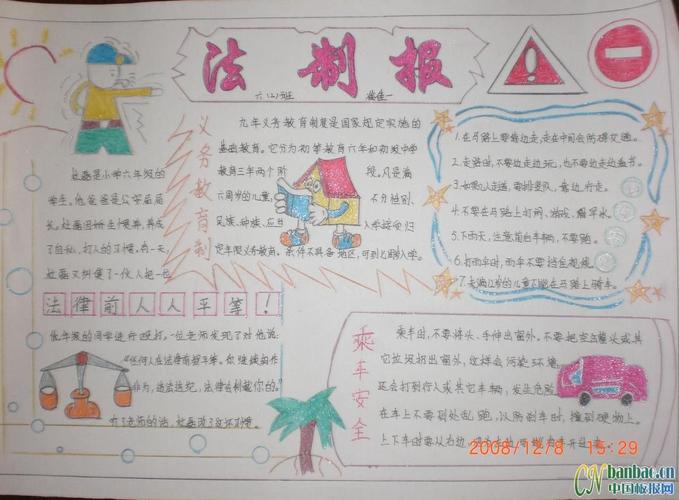 法制报
六(2)班
义务教育制
九年义务教育制度是国家规定实施的
基础教育。它分为初等教育六年和初级中学
教育三年两个阶段。凡是满
六周岁的儿童,不分性别、
民族、种族、应当入学接受规
定年限义务教育。条件不具备地区,可到七周岁入学。
是小学六年级的
学生。他爸爸是公安局局
长。
了自私、打人的习惯。有一天,
又纠集了一伙人把一位
法律前人人平等!
低年级的同学进行殴打。一位老师发现了对他说:
“任何人在法律前都平等。你继续胡作
非为,违法违纪,法律会制裁你的。”
听了老师的话,
1.在马路上要靠边走,走在中间会防碍交通。
2.走路时,不要边走边玩,也不要边走边看书。
3.和别人走道,要排好队,靠边行走。
4.不要在马路上打闹、游戏、
5.下雨天,注意前台车辆,不要跑。
6.打雨伞时,雨伞不要挡住视线。
7.未满12岁的儿童不能在马路上骑车。
乘车安全
乘车时,不要将头、手伸出窗外。不要把空罐头或其
它垃圾扔出窗外,这样会污染环境,
还会打到行人或其它车辆,发生危险。
在车上不要到处乱跑,以防刹车时,撞到硬物上。
上下车时要从右边
2008/12/8 15:29
CNbanbao.cn
中国板报网